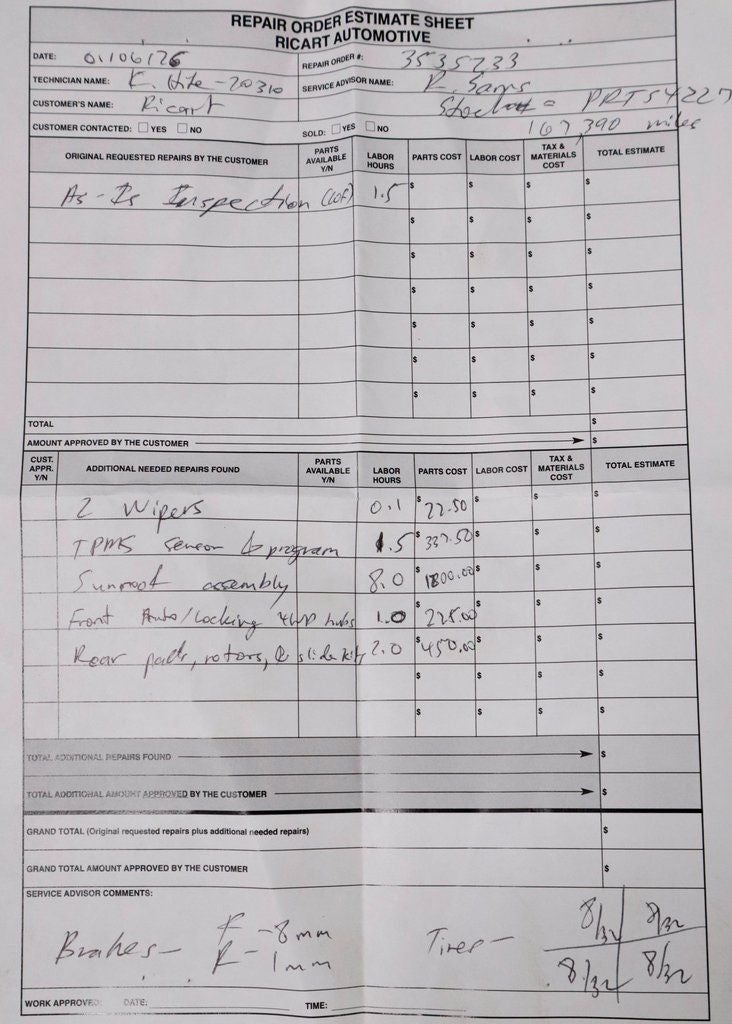 REPAIR ORDER ESTIMATE SHEET
RICART AUTOMOTIVE
DATE: 01/06/26 REPAIR ORDER #: 3535233
TECHNICIAN NAME: K. Hite-20310 SERVICE ADVISOR NAME: R. Sams
CUSTOMER'S NAME: Ricart = PRT54227
CUSTOMER CONTACTED: YES NO SOLD: YES NO 167,390 miles
ORIGINAL REQUESTED REPAIRS BY THE CUSTOMER PARTS AVAILABLE Y/N LABOR HOURS PARTS COST LABOR COST TAX & MATERIALS COST TOTAL ESTIMATE
As-Is Inspection (COF) 1.5 $ $ $ $
$ $ $ $
$ $ $ $
$ $ $ $
$ $ $ $
$ $ $ $
$ $ $ $
TOTAL $
AMOUNT APPROVED BY THE CUSTOMER $
CUST. APPR. Y/N ADDITIONAL NEEDED REPAIRS FOUND PARTS AVAILABLE Y/N LABOR HOURS PARTS COST LABOR COST TAX & MATERIALS COST TOTAL ESTIMATE
2 Wipers 0.1 $22.50 $ $ $
TPMS sensor & program 1.5 $337.50 $ $ $
Sunroof assembly 8.0 $1800.00 $ $ $
Front Auto/Locking 4WD hubs 1.0 $225.00 $ $ $
Rear pads, rotors, & slide kit 2.0 $450.00 $ $ $
$ $ $ $
$ $ $ $
TOTAL ADDITIONAL REPAIRS FOUND $
TOTAL ADDITIONAL AMOUNT APPROVED BY THE CUSTOMER $
GRAND TOTAL (Original requested repairs plus additional needed repairs) $
GRAND TOTAL AMOUNT APPROVED BY THE CUSTOMER $
SERVICE ADVISOR COMMENTS:
Brakes- F -8mm Tires- 8/32 8/32
R- 1mm 8/32 8/32
WORK APPROVED: DATE: TIME: